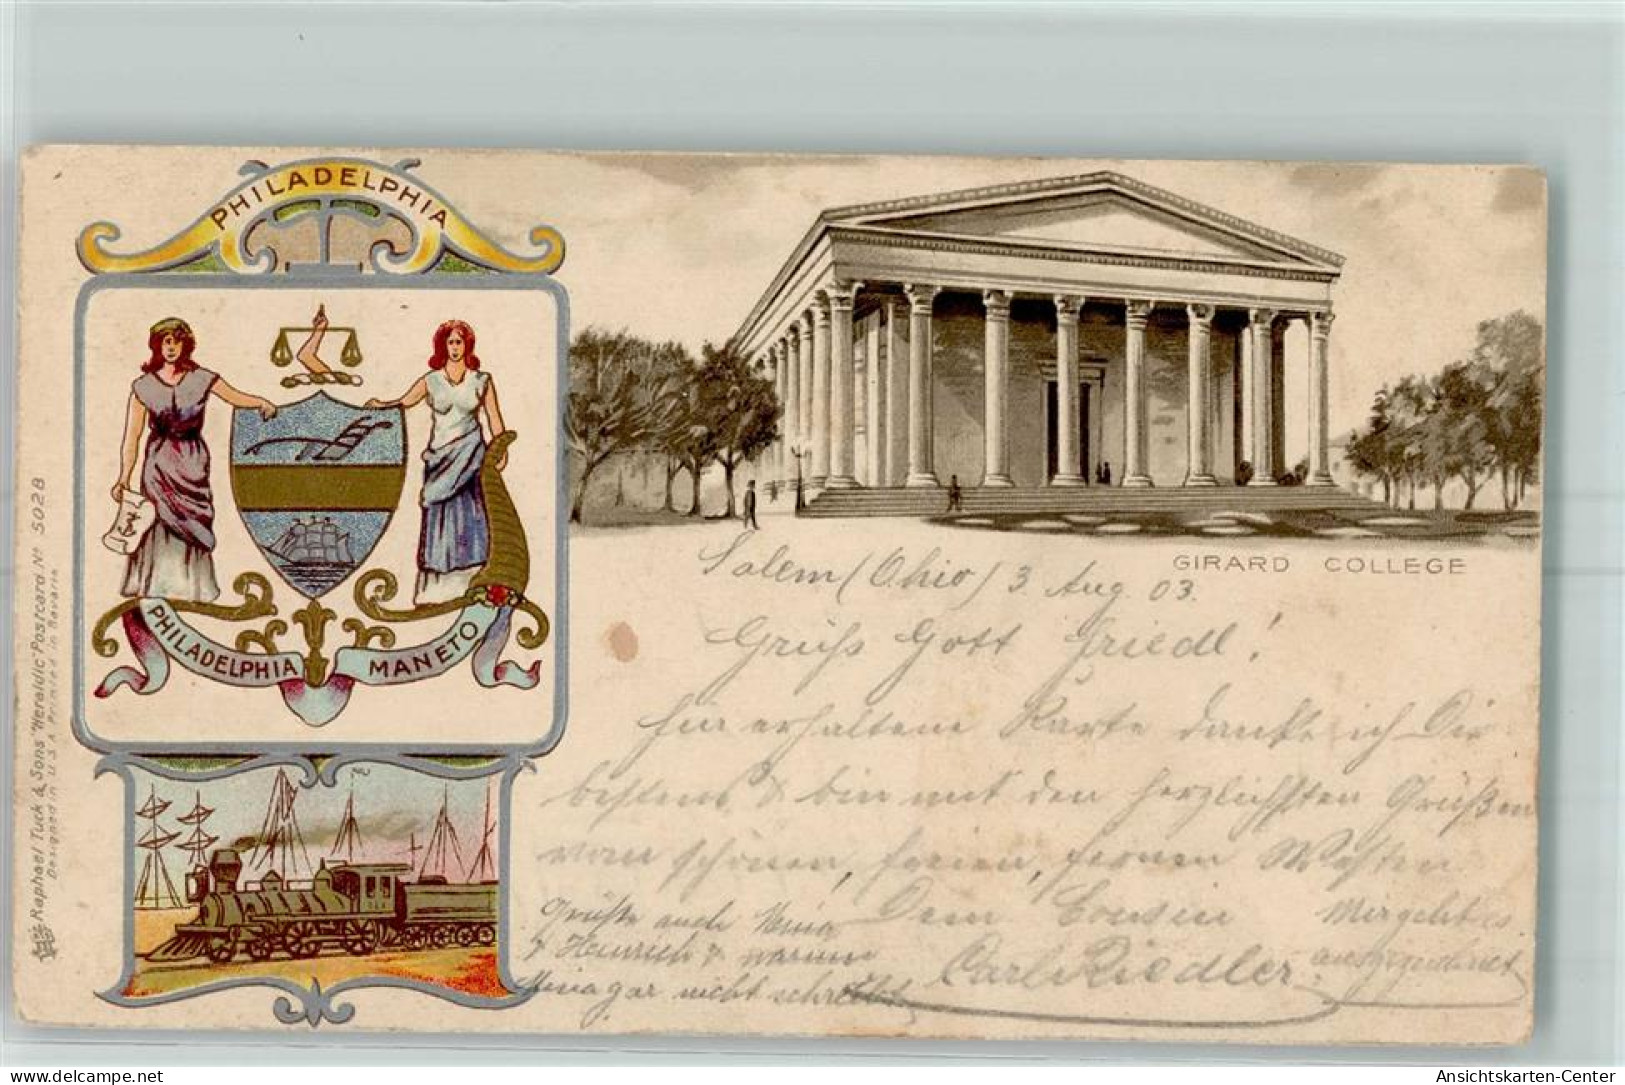 PHILADELPHIA
PHILADELPHIA MANETO
Raphael Tuck & Sons "Heraldic" Postcard No 5028
Designed in U.S.A. Printed in Bavaria
GIRARD COLLEGE
Salem (Ohio) 3. Aug. 03.
Grüß Gott Friedl!
für erhaltene Karte danke ich Dir
bestens & bin mit den herzlichsten Grüßen
vom schönen, freien, fernen Westen
Dein Cousin
Carl Riedler
Mir geht es
ausgezeichnet
Grüße auch
& Heinrich & warum
Mina gar nicht schreibt
delcampe.net
Ansichtskarten-Center